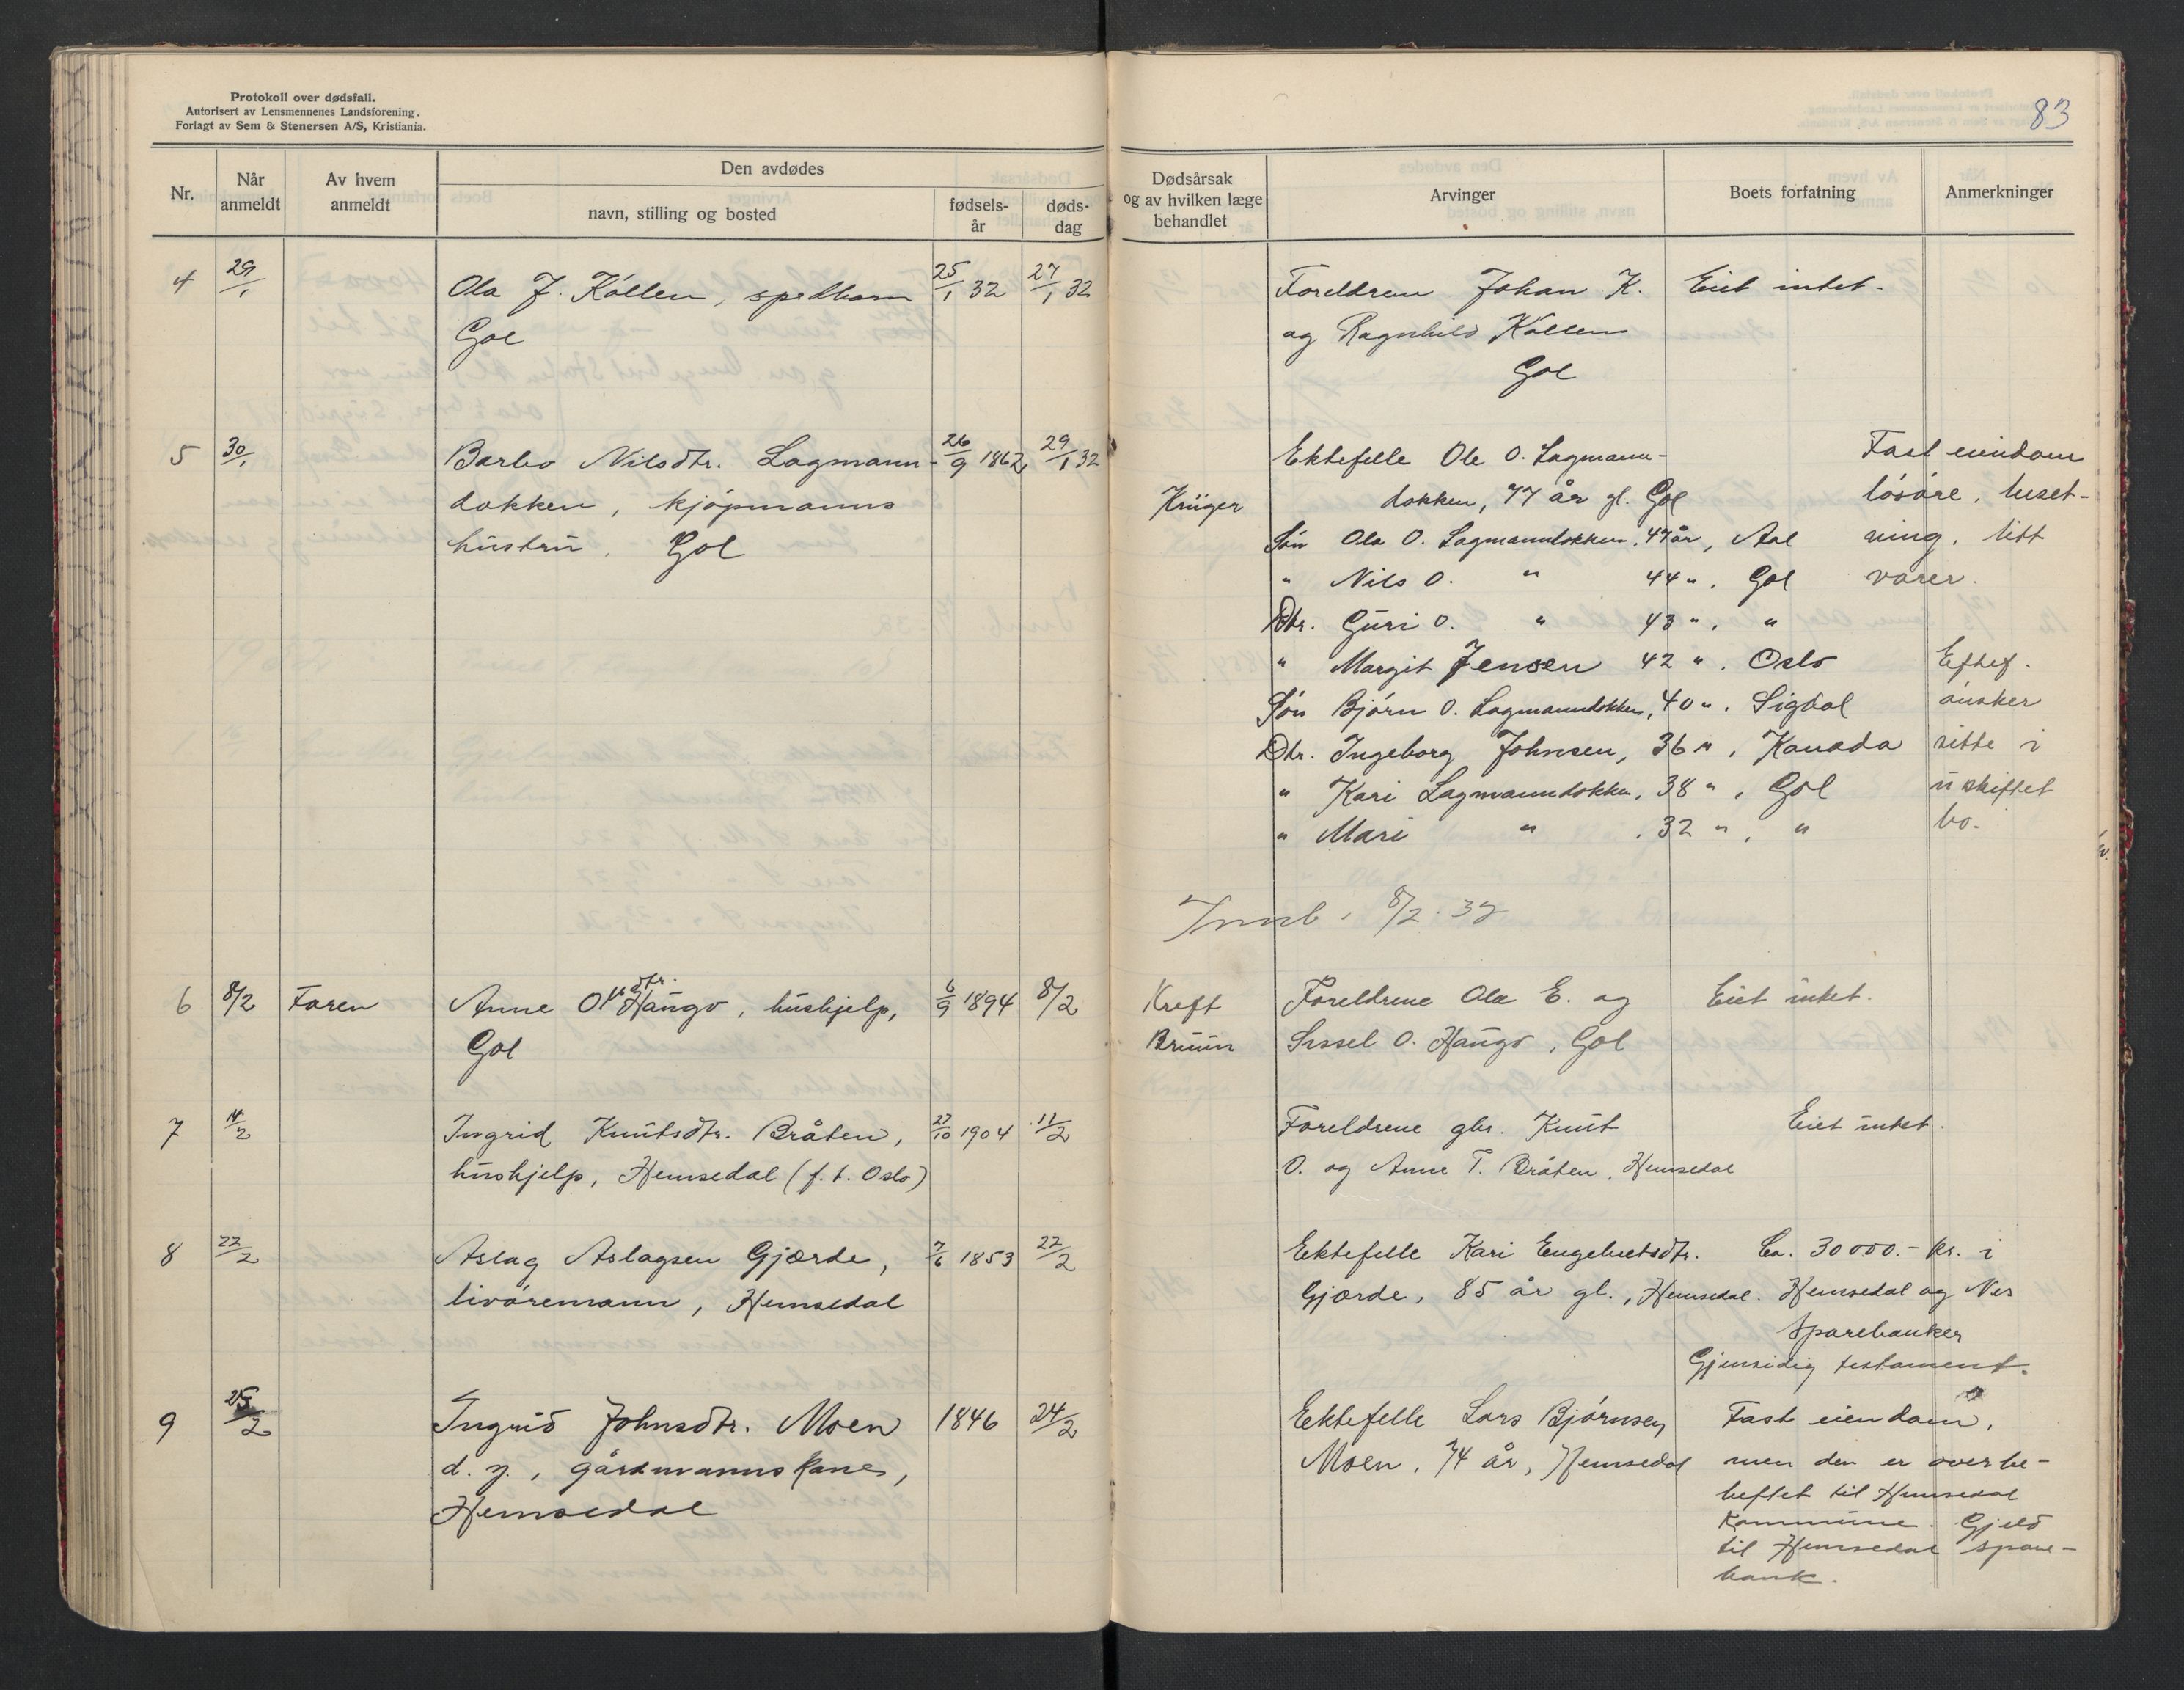 Protokoll over dødsfall.
Autorisert av Lensmennenes Landsforening.
Forlagt av Sem & Stenersen A/S, Kristiania.
83
Nr.
Når anmeldt
Av hvem anmeldt
Den avdødes
navn, stilling og bosted
fødsels-år
døds-dag
Dødsårsak og av hvilken læge behandlet
Arvinger
Boets forfatning
Anmerkninger
4 29/1 Ola J. Kóllen, spedbarn 25/1 32 27/1 32 Foreldrene Johan K. Eiet intet.
Gol og Ragnhild Kóllen
Gol
5 30/1 Barbo Nilsdtr. Lagmann- 26/9 1862 29/1 32 Ektefelle Ole O. Lagmann- Fast eiendom
dokken, kjópmanns Krüger dokken, 77 år gl. Gol lósóre, buset-
hustru, Gol Són Ola O. Lagmanndokken, 47 år, Aal ning, litt
" Nils O. " 44 ", Gol varer.
Dtr. Guri O. " 43 ", "
" Margit Jensen 42 ", Oslo Eftef.
Són Bjórn O. Lagmanndokken, 40 ", Sigdal ónsker
Dtr. Ingeborg Johnsen, 36 ", Kanada sitte i
" Kari Lagmanndokken, 38 ", Gol uskiftet
" Mari " , 32 ", " bo.
Innb. 8/2. 32
6 8/2 Faren Anne Olsdtr. Haugo, hushjelp, 6/9 1894 8/2 Kreft Foreldrene Ola E. og Eiet intet.
Gol Bruun Sissel O. Haugo, Gol
7 14/2 Ingrid Knutsdtr. Bråten, 27/10 1904 11/2 Foreldrene gbr. Knut Eiet intet.
hushjelp, Hemsedal (f. t. Oslo) O. og Anne T. Bråten, Hemsedal
8 22/2 Aslag Aslagsen Gjærde, 7/6 1853 22/2 Ektefelle Kari Engebretsdtr. Ca. 30000.- kr. i
livóremann, Hemsedal Gjærde, 85 år gl., Hemsedal. Hemsedal og Nes
Sparebanker
Gjensidig testament.
9 25/2 Ingrid Johnsdtr. Moen 1846 24/2 Ektefelle Lars Bjórnsen Fast eiendom,
d. y., gårdmannskone, Moen, 74 år, Hemsedal men den er overbe-
Hemsedal heftet til Hemsedal
Kommune. Gjeld
til Hemsedal spare-
bank.